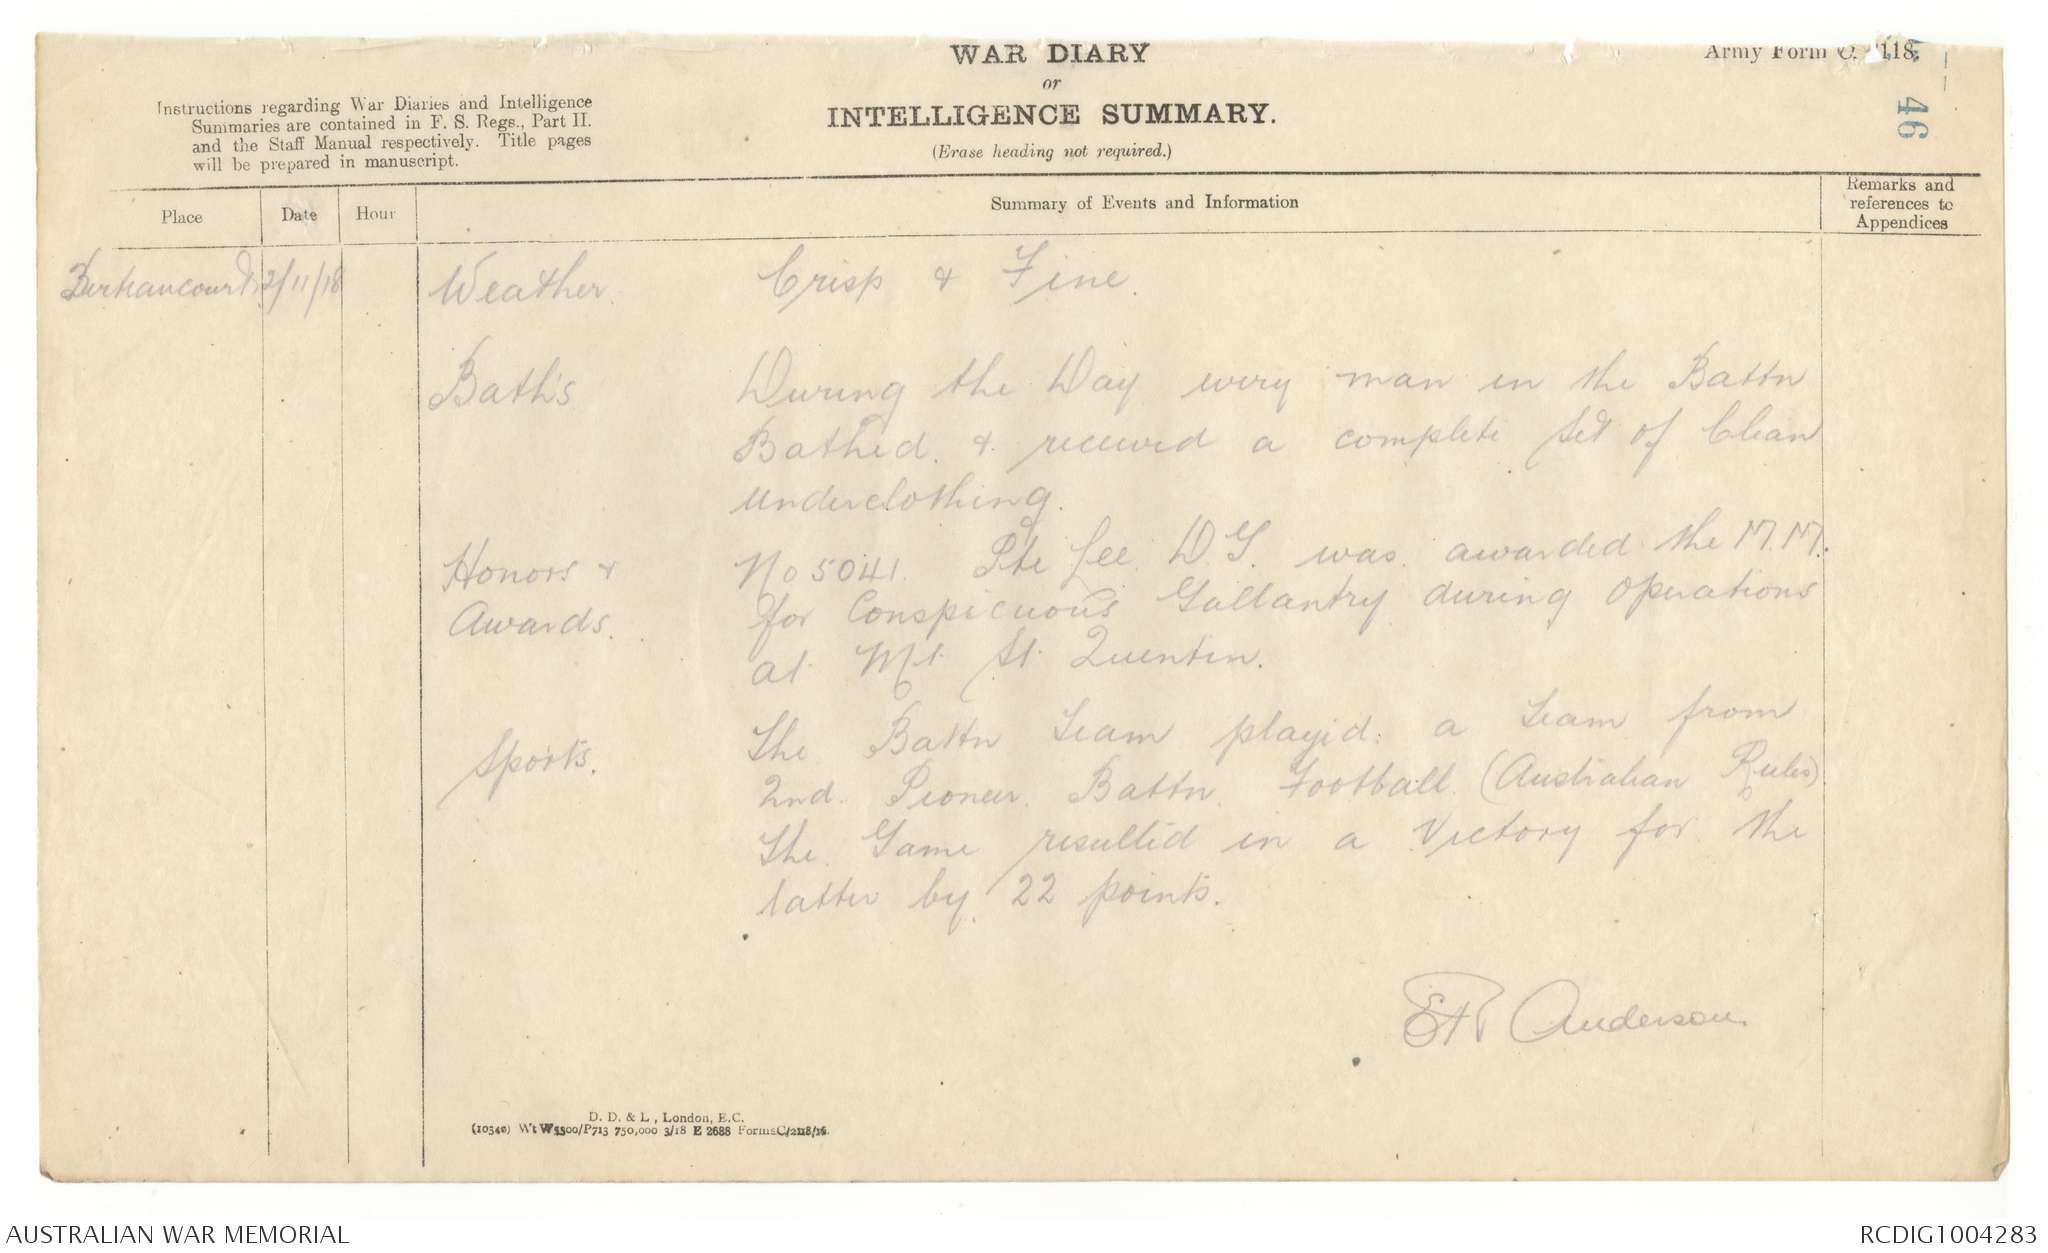 WAR DIARY
or
INTELLIGENCE SUMMARY.
(Erase heading not required.)
Army Form C. 118.
46
Instructions regarding War Diaries and Intelligence
Summaries are contained in F. S. Regs., Part II.
and the Staff Manual respectively. Title pages
will be prepared in manuscript.
Place Date Hour Summary of Events and Information Remarks and references to Appendices
2/11/18 Weather. Crisp & Fine.
Bath's During the Day every man in the Battn
Bathed. & received a complete set of Clean
underclothing.
Honors & No 5041. Pte Lee D.G. was awarded the M.M.
Awards. for Conspicuous Gallantry during operations
at Mt. St. Quentin.
Sports. The Battn Team played a team from
2nd. Pioneer. Battn. Football (Australian Rules)
The Game resulted in a Victory for the
latter by 22 points.
Anderson
D. D. & L., London, E.C.
(10540) Wt W5300/P713 750,000 3/18 E 2688 Forms C/2118/16.
AUSTRALIAN WAR MEMORIAL RCDIG1004283